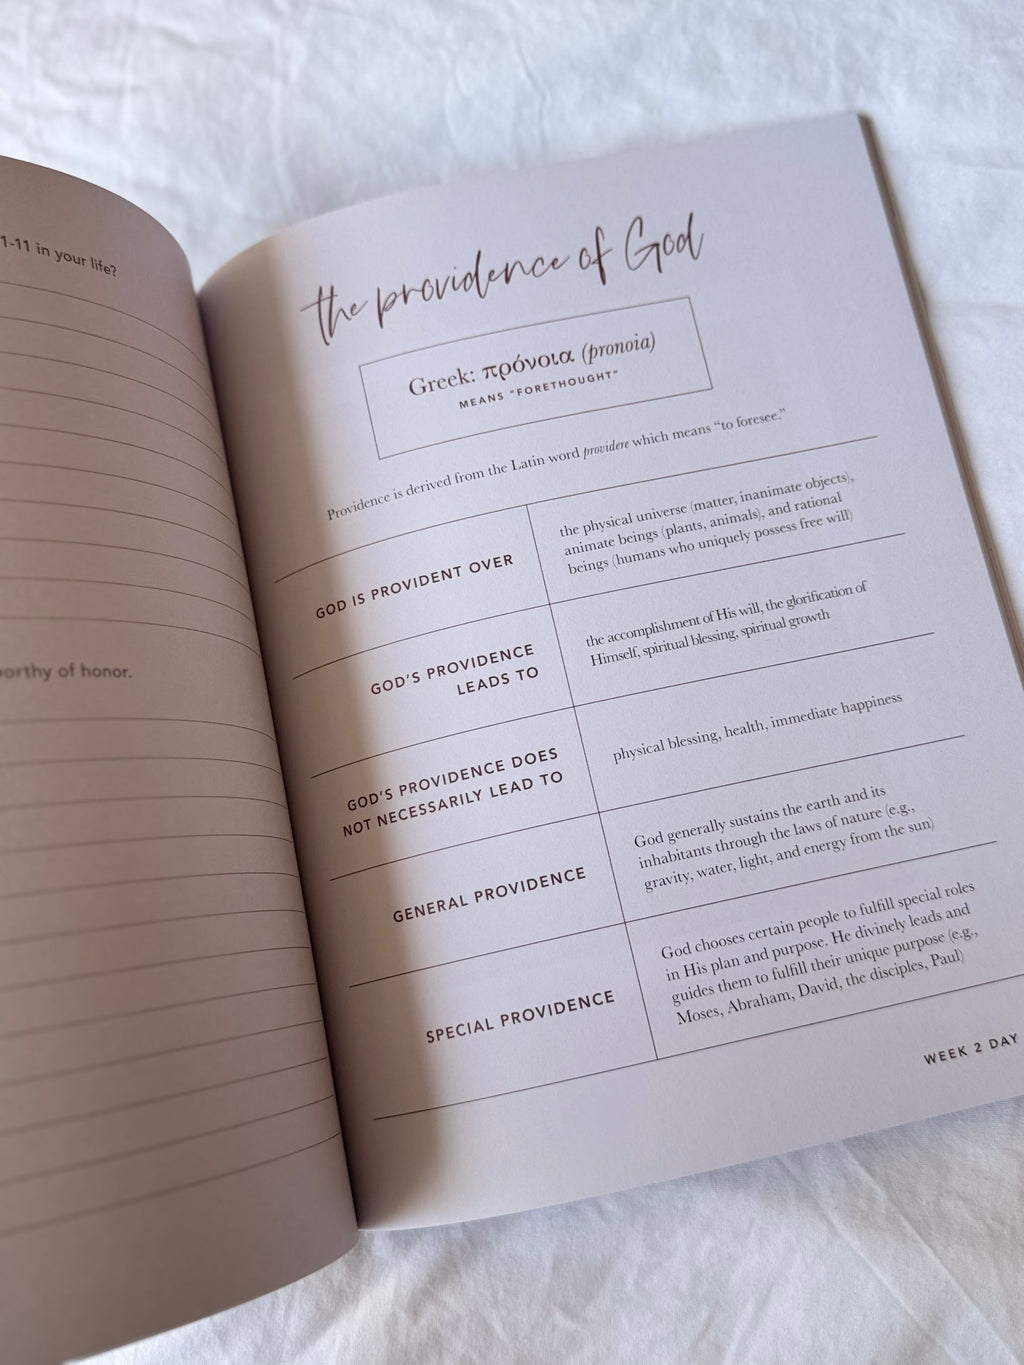 1-11 in your life?
of honor.
the providence of God
Greek: πρόνοια (pronoia)
MEANS "FORETHOUGHT"
Providence is derived from the Latin word providere which means "to foresee."
GOD IS PROVIDENT OVER
the physical universe (matter, inanimate objects),
animate beings (plants, animals), and rational
beings (humans who uniquely possess free will)
GOD'S PROVIDENCE
LEADS TO
the accomplishment of His will, the glorification of
Himself, spiritual blessing, spiritual growth
GOD'S PROVIDENCE DOES
NOT NECESSARILY LEAD TO
physical blessing, health, immediate happiness
GENERAL PROVIDENCE
God generally sustains the earth and its
inhabitants through the laws of nature (e.g.,
gravity, water, light, and energy from the sun)
SPECIAL PROVIDENCE
God chooses certain people to fulfill special roles
in His plan and purpose. He divinely leads and
guides them to fulfill their unique purpose (e.g.,
Moses, Abraham, David, the disciples, Paul)
WEEK 2 DAY